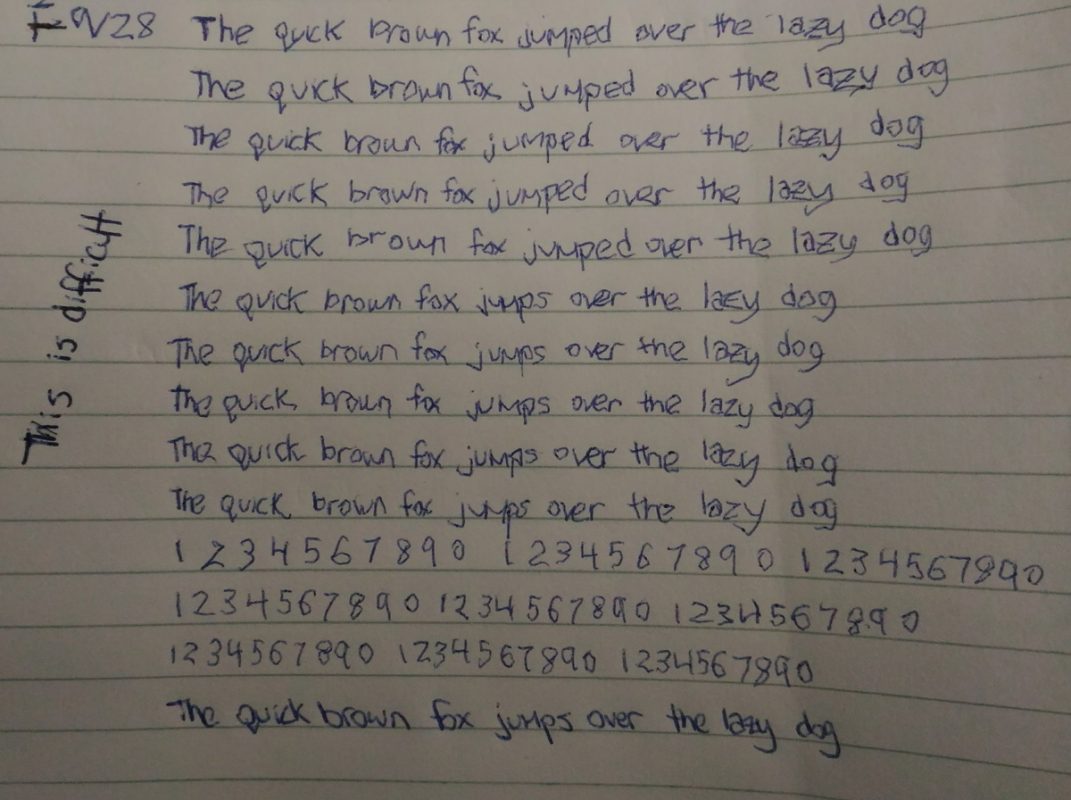 9/28 The quck brown fox jumped over the lazy dog
The quick brown fox jumped over the lazy dog
The quick brown fox jumped over the lazy dog
The quick brown fox jumped over the lazy dog
The quick brown fox jumped over the lazy dog
The quick brown fox jumps over the lazy dog
The quick brown fox jumps over the lazy dog
The quick brown fox jumps over the lazy dog
The quick brown fox jumps over the lazy dog
The quick brown fox jumps over the lazy dog
1 2 3 4 5 6 7 8 9 0 1 2 3 4 5 6 7 8 9 0 1 2 3 4 5 6 7 8 9 0
1 2 3 4 5 6 7 8 9 0 1 2 3 4 5 6 7 8 9 0 1 2 3 4 5 6 7 8 9 0
1 2 3 4 5 6 7 8 9 0 1 2 3 4 5 6 7 8 9 0 1 2 3 4 5 6 7 8 9 0
The quick brown fox jumps over the lazy dog
This is difficult